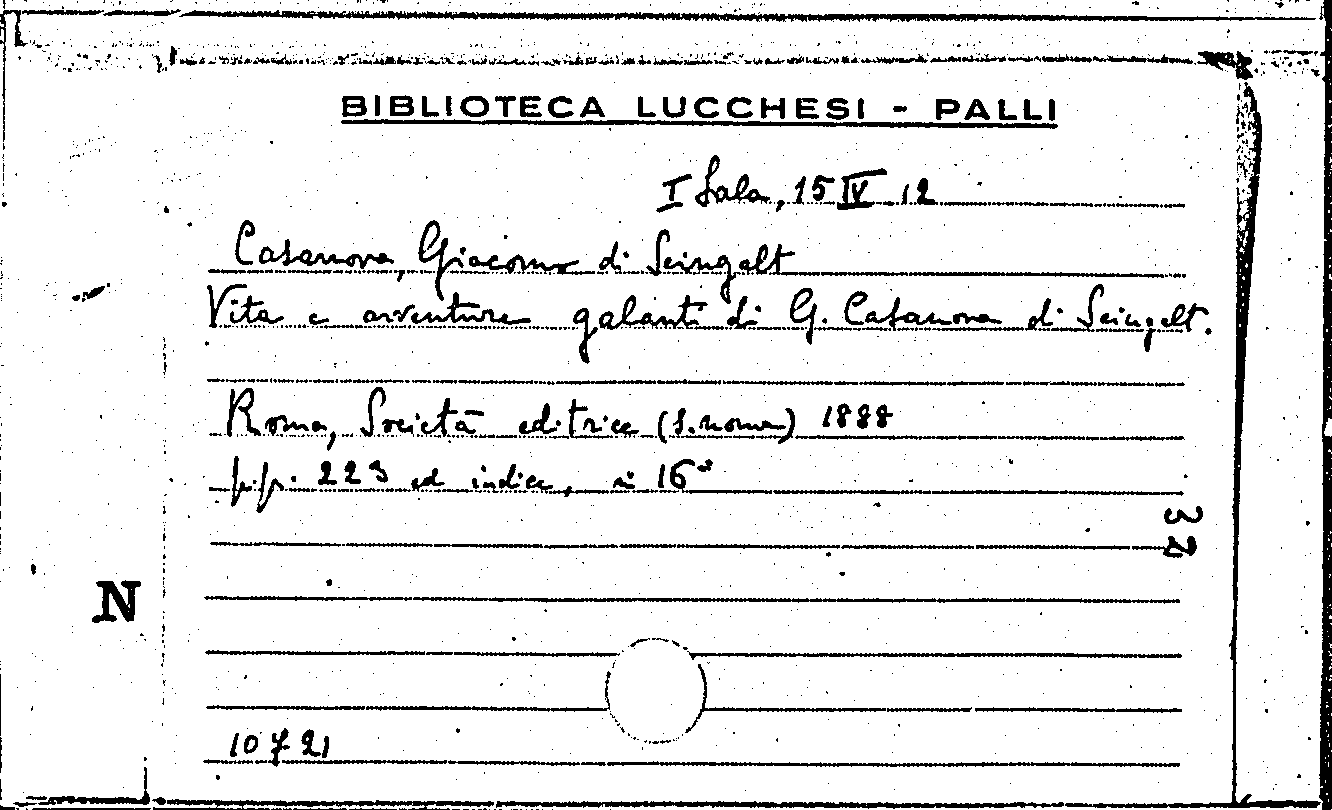 BIBLIOTECA LUCCHESI - PALLI
I Sala, 15 IV .12
Casanova, Giacomo di Seingalt
Vita e avventure galanti di G. Casanova di Seingalt.
Roma, Società editrice (s. nome) 1888
pp. 223 ed indice, in 16°
32
N
10721